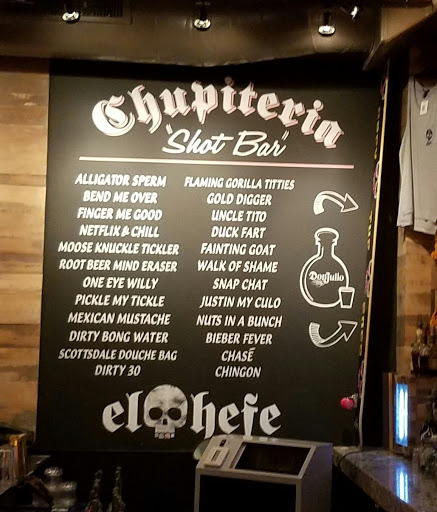 Chupiteria
"Shot Bar"
ALLIGATOR SPERM
BEND ME OVER
FINGER ME GOOD
NETFLIX & CHILL
MOOSE KNUCKLE TICKLER
ROOT BEER MIND ERASER
ONE EYE WILLY
PICKLE MY TICKLE
MEXICAN MUSTACHE
DIRTY BONG WATER
SCOTTSDALE DOUCHE BAG
DIRTY 30
FLAMING GORILLA TITTIES
GOLD DIGGER
UNCLE TITO
DUCK FART
FAINTING GOAT
WALK OF SHAME
SNAP CHAT
JUSTIN MY CULO
NUTS IN A BUNCH
BIEBER FEVER
CHASE
CHINGON
Don Julio
el hefe